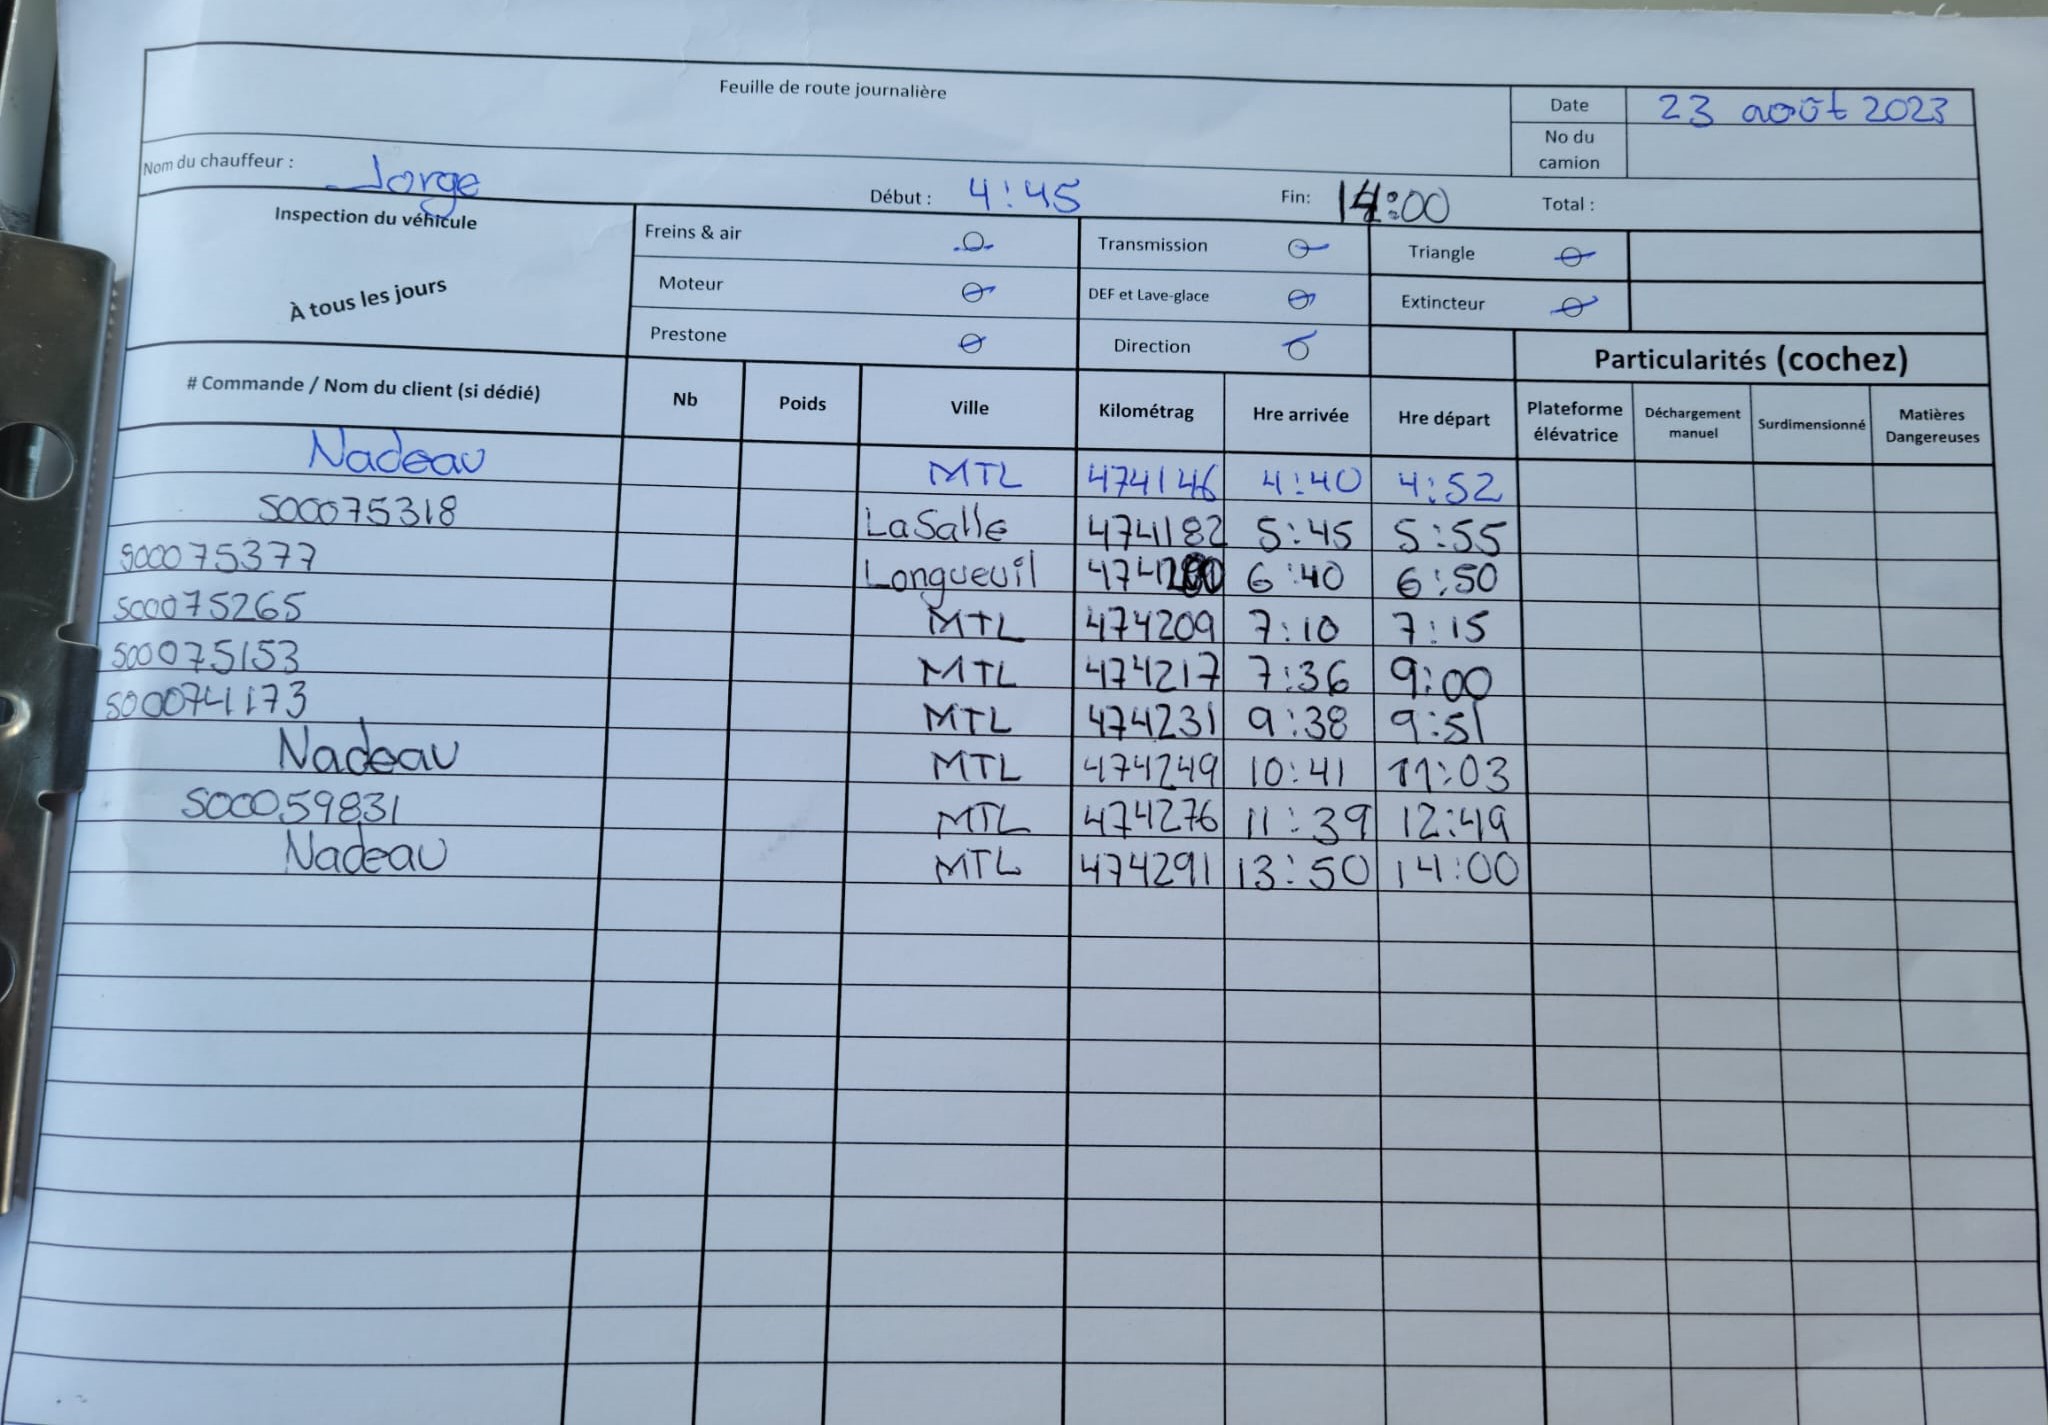 Feuille de route journalière
Date 23 août 2023
No du camion
Nom du chauffeur : Jorge Début : 4:45 Fin: 14:00 Total :
Inspection du véhicule
À tous les jours
Freins & air Transmission Triangle
Moteur DEF et Lave-glace Extincteur
Prestone Direction
Particularités (cochez)
# Commande / Nom du client (si dédié) Nb Poids Ville Kilométrag Hre arrivée Hre départ Plateforme élévatrice Déchargement manuel Surdimensionné Matières Dangereuses
Nadeau MTL 474146 4:40 4:52
S00075318 LaSalle 474182 5:45 5:55
S00075377 Longueuil 6:40 6:50
S00075265 MTL 474209 7:10 7:15
S00075153 MTL 474217 7:36 9:00
S00074173 MTL 474231 9:38 9:51
Nadeau MTL 474249 10:41 11:03
S00059831 MTL 474276 11:39 12:49
Nadeau MTL 474291 13:50 14:00